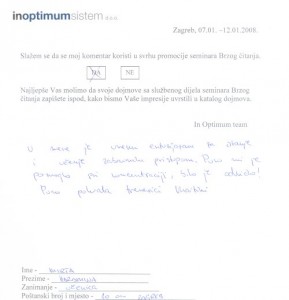 inoptimumsistem d.o.o.
Zagreb, 07.01. -12.01.2008.
Slažem se da se moj komentar koristi u svrhu promocije seminara Brzog čitanja.
DA NE
Najljepše Vas molimo da svoje dojmove za službenog dijela seminara Brzog
čitanja zapišete ispod, kako bismo Vaše impresije uvrstili u katalog dojmova.
In Optimum team
U mene je unesen entuzijazam za
i učenje zabavnim pristupom. Puno mi je
pomoglo pri koncentraciji,
Puno pohvala
Ime -
Prezime -
Zanimanje - UČENICA
Poštanski broj i mjesto - 10 000 ZAGREB